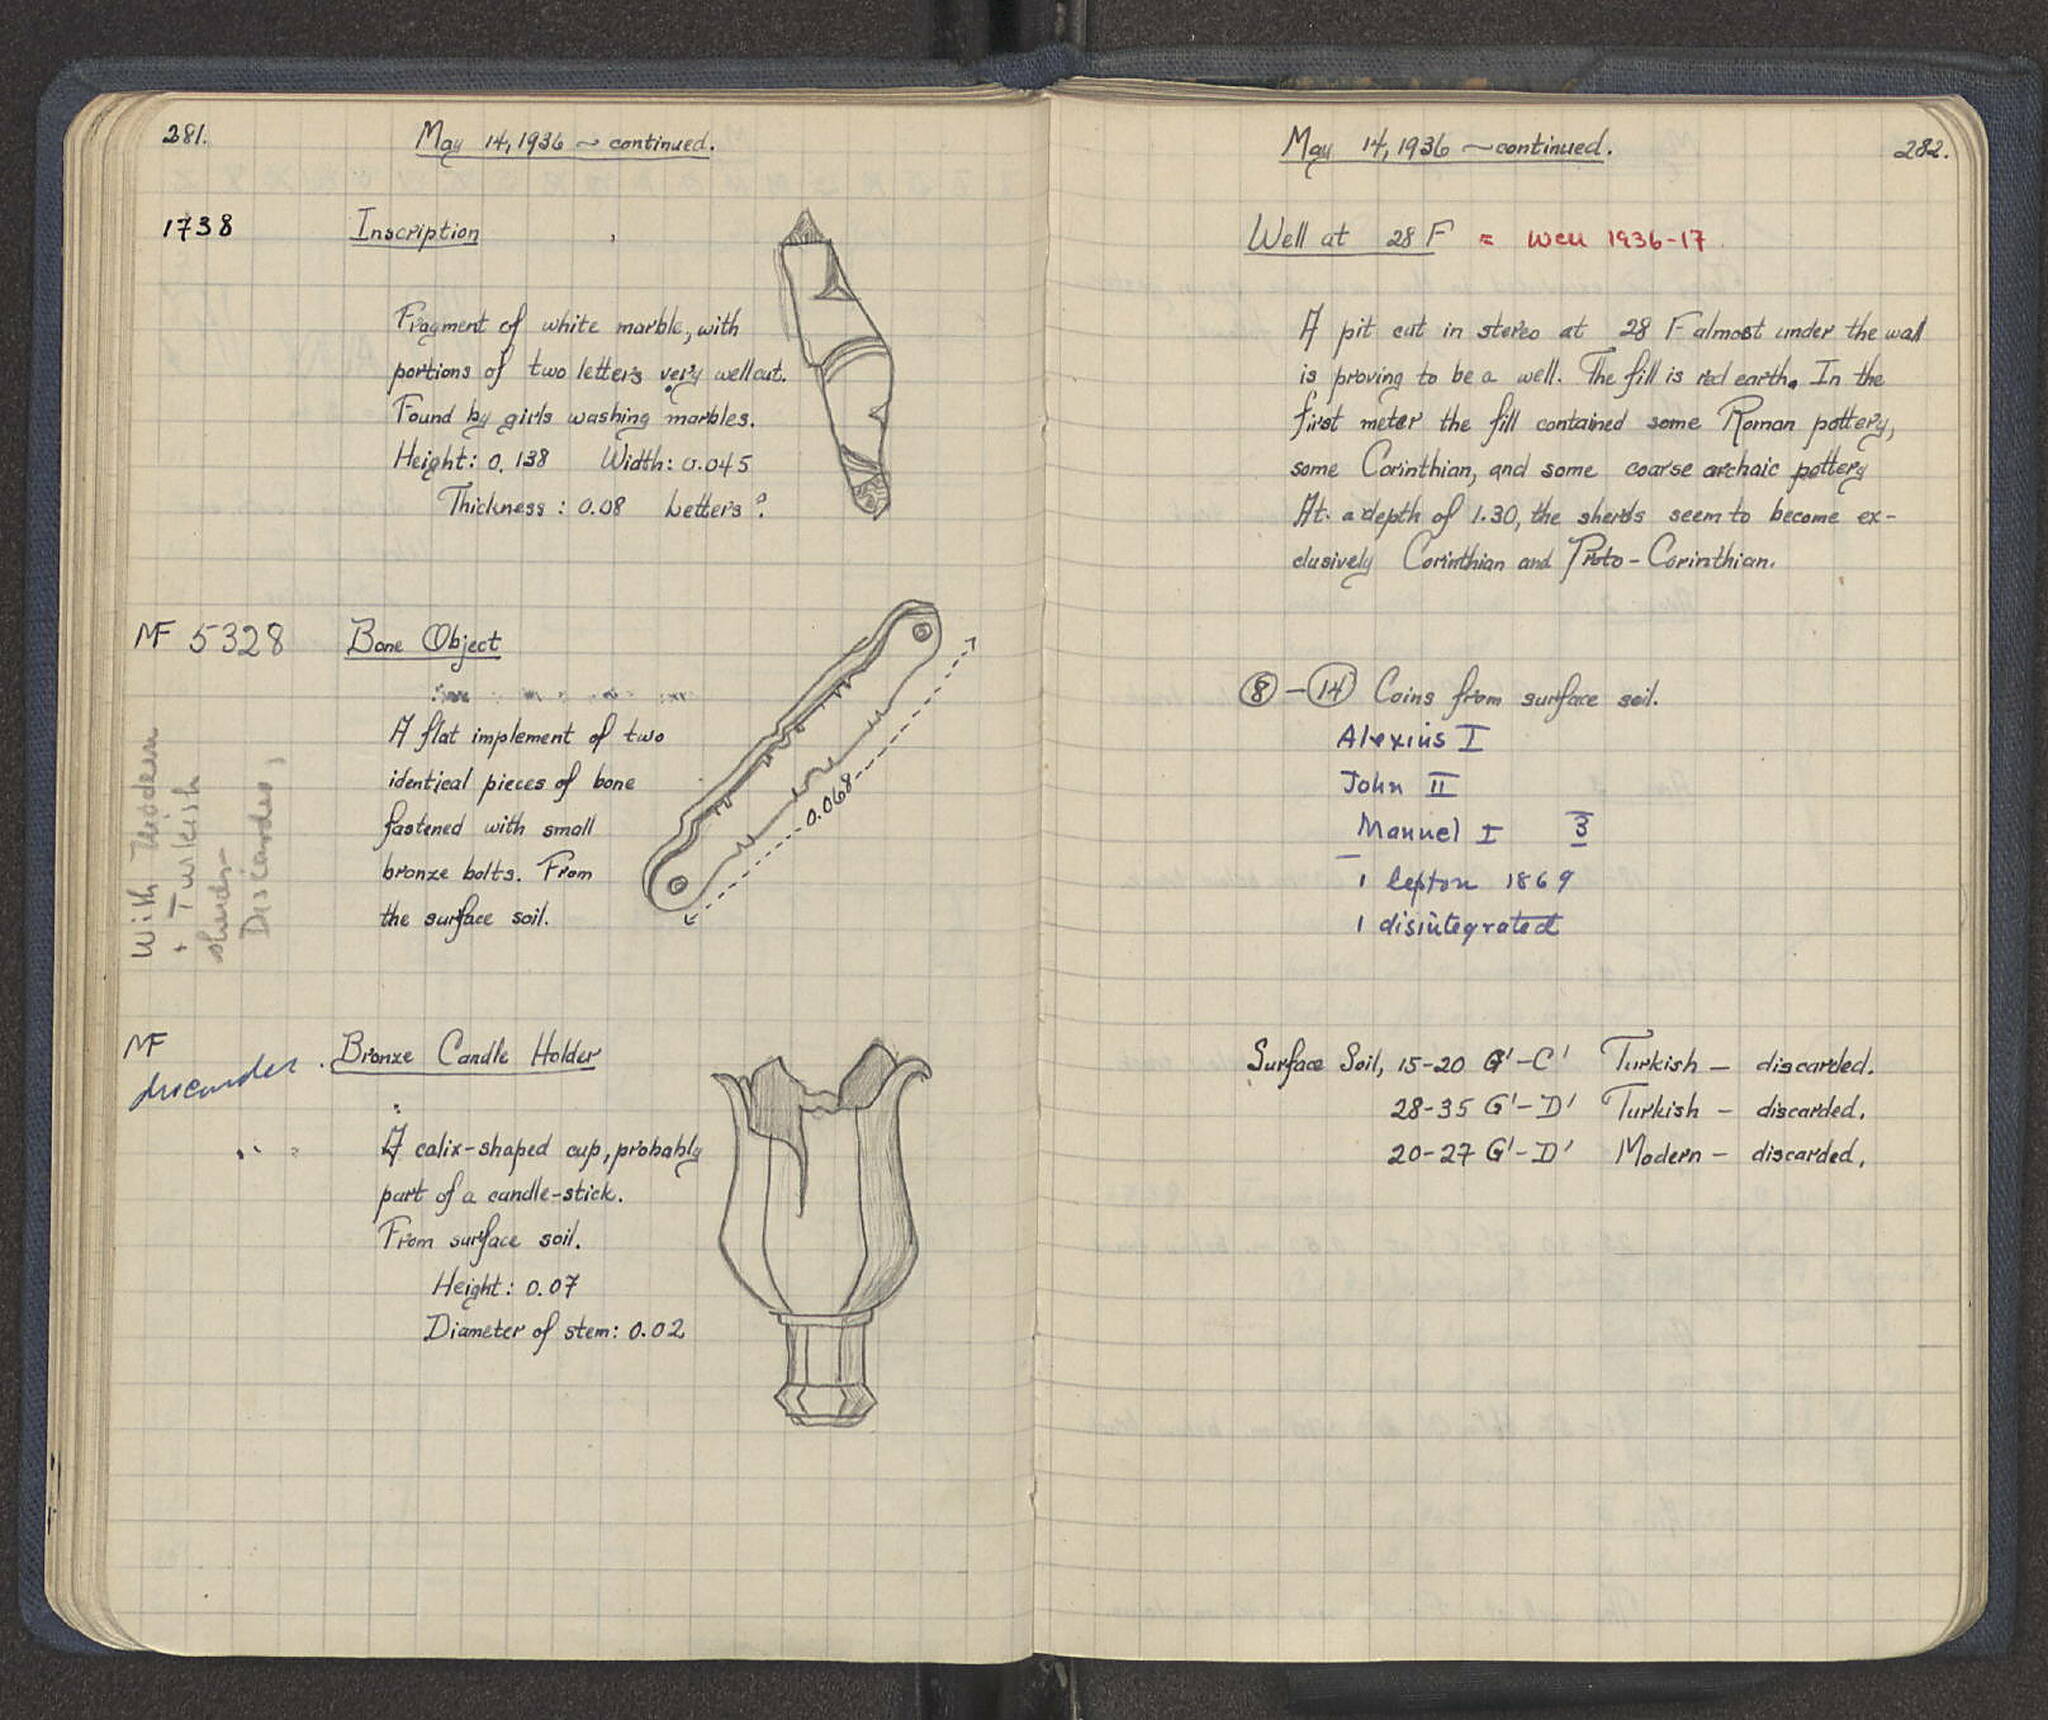 281.
May 14, 1936 ~ continued.
1738
Inscription
Fragment of white marble, with
portions of two letters very well cut.
Found by girls washing marbles.
Height: 0.138 Width: 0.045
Thickness: 0.08 Letters?
MF 5328
Bone Object
A flat implement of two
identical pieces of bone
fastened with small
bronze bolts. From
the surface soil.
0.068
With Modern
+ Turkish
sherds-
Discarded,
MF
discarded.
Bronze Candle Holder
A calix-shaped cup, probably
part of a candle-stick.
From surface soil.
Height: 0.07
Diameter of stem: 0.02
May 14, 1936 ~ continued.
282.
Well at 28 F = Well 1936-17
A pit cut in stereo at 28 F almost under the wall
is proving to be a well. The fill is red earth. In the
first meter the fill contained some Roman pottery,
some Corinthian, and some coarse archaic pottery
At a depth of 1.30, the sherds seem to become ex-
clusively Corinthian and Proto-Corinthian.
8 - 14 Coins from surface soil.
Alexius I
John II
Manuel I 3
1 lepton 1869
1 disintegrated
Surface Soil, 15-20 G'-C' Turkish - discarded.
28-35 G'-D' Turkish - discarded.
20-27 G'-D' Modern - discarded.